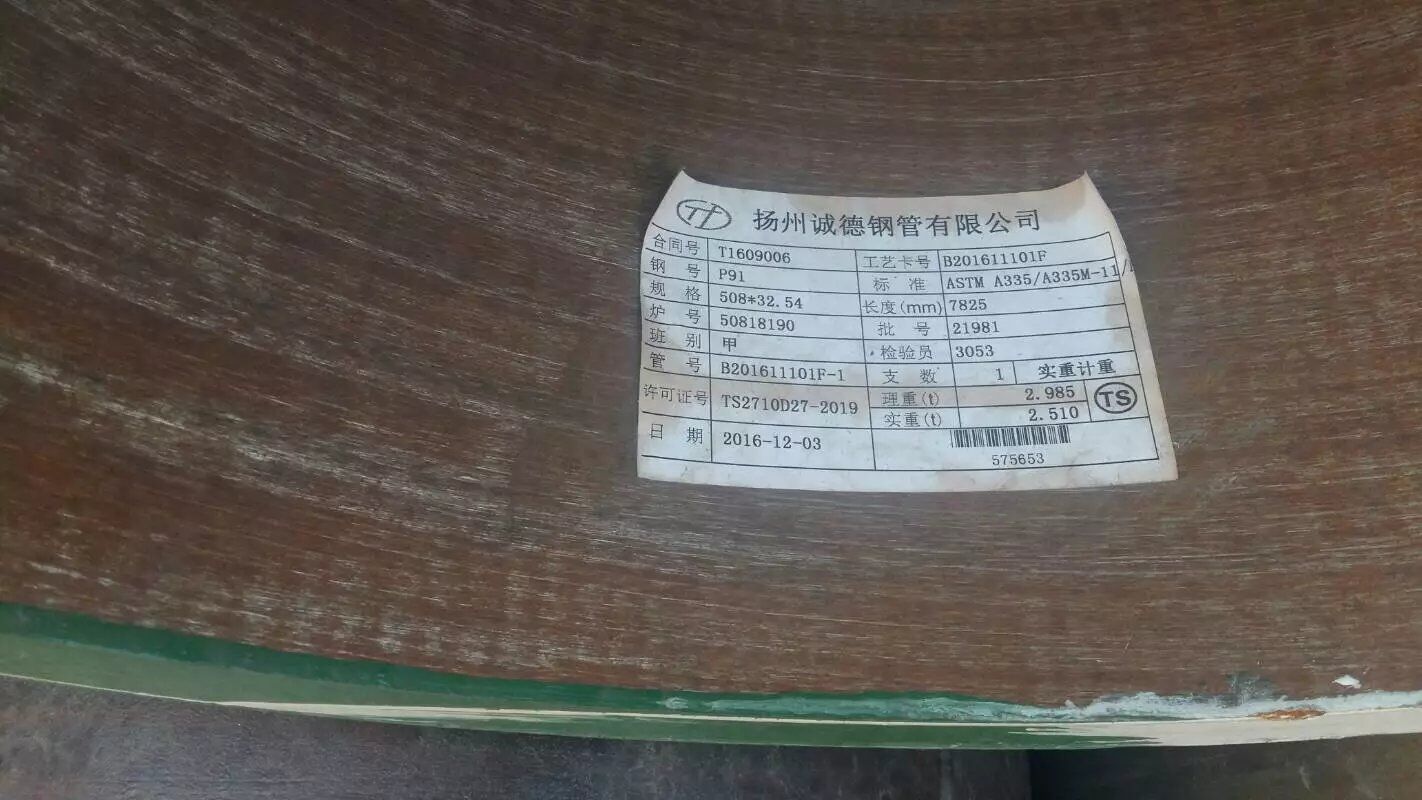 扬州诚德钢管有限公司
合同号 T1609006 工艺卡号 B201611101F
钢 号 P91 标 准 ASTM A335/A335M-11/
规 格 508*32.54 长度(mm) 7825
炉 号 50818190 批 号 21981
班 别 甲 检验员 3053
管 号 B201611101F-1 支 数 1 实重计重
许可证号 TS2710D27-2019 理重(t) 2.985 TS
实重(t) 2.510
日 期 2016-12-03
575653